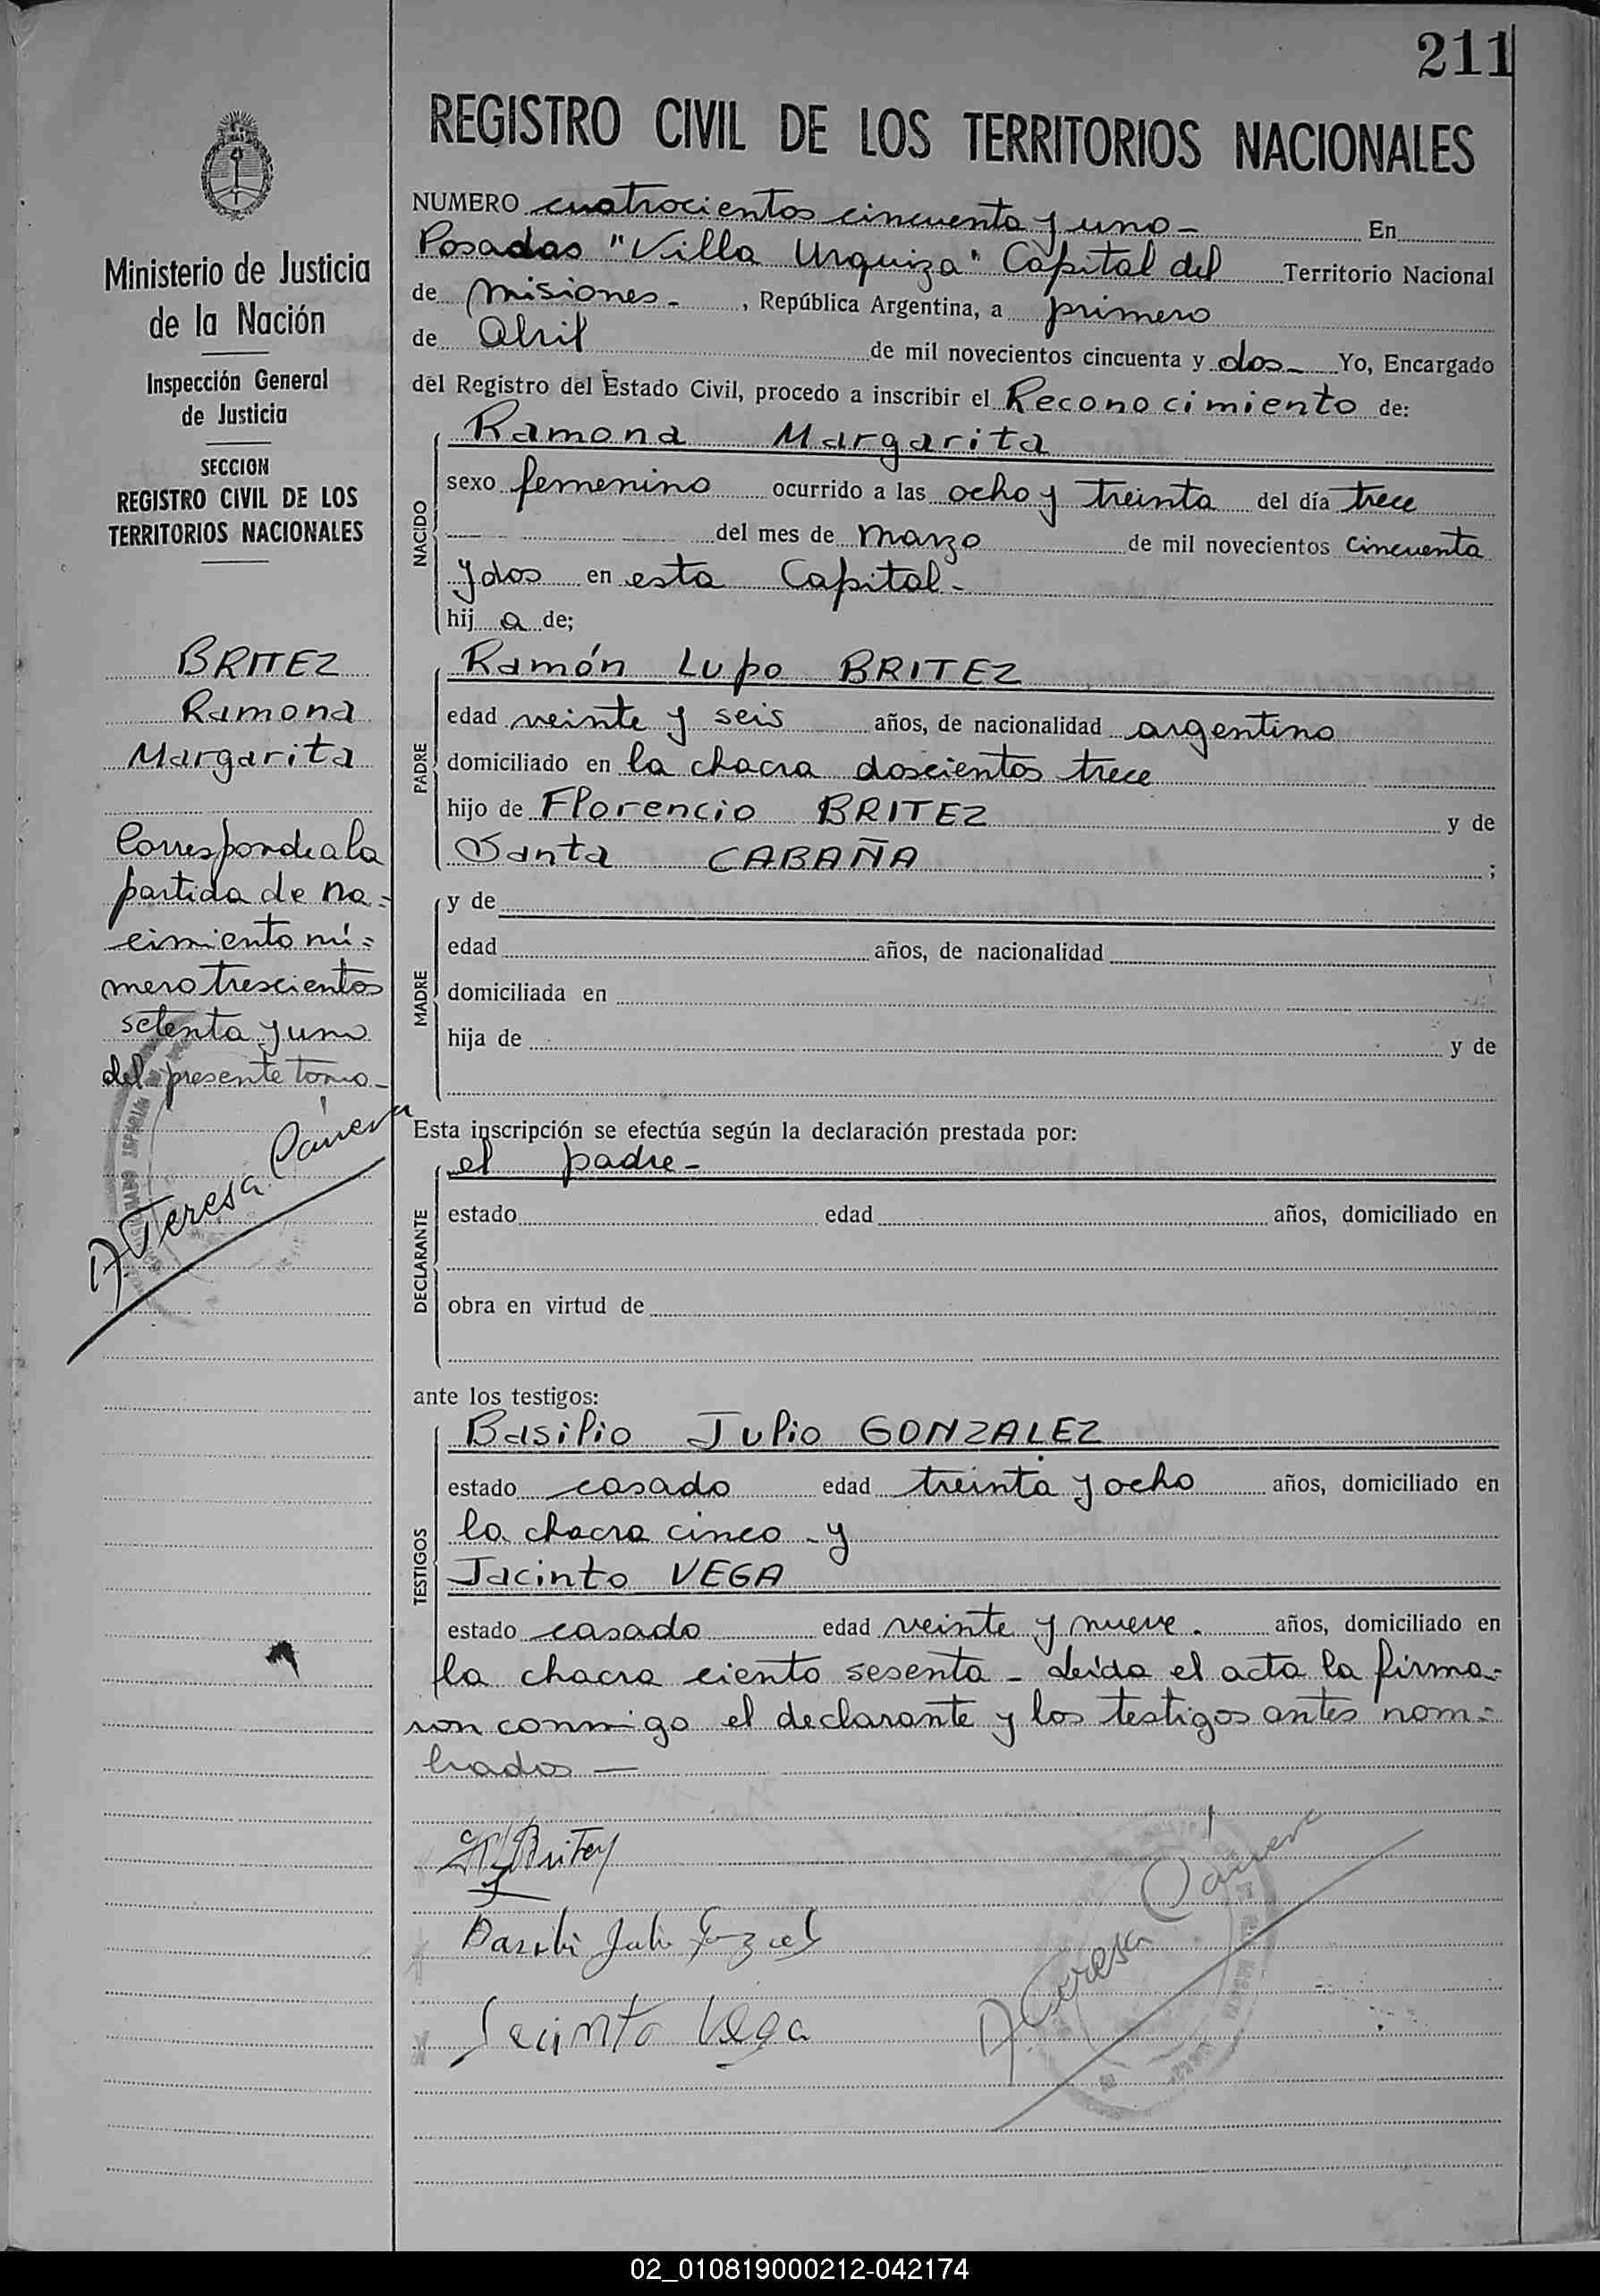 211
REGISTRO CIVIL DE LOS TERRITORIOS NACIONALES
Ministerio de Justicia
de la Nación
Inspección General
de Justicia
SECCION
REGISTRO CIVIL DE LOS
TERRITORIOS NACIONALES
BRITEZ
Ramona
Margarita
Corresponde a la
partida de na=
cimiento nú=
mero trescientos
setenta y uno
del presente tomo-
NUMERO cuatrocientos cincuenta y uno - En
Posadas "Villa Urquiza" Capital del Territorio Nacional
de Misiones - , República Argentina, a primero
de Abril de mil novecientos cincuenta y dos - Yo, Encargado
del Registro del Estado Civil, procedo a inscribir el Reconocimiento de:
NACIDO
Ramona Margarita
sexo femenino ocurrido a las ocho y treinta del día trece
del mes de Marzo de mil novecientos cincuenta
y dos en esta Capital -
hij a de;
PADRE
Ramón Lupo BRITEZ
edad veinte y seis años, de nacionalidad argentino
domiciliado en la chacra doscientos trece
hijo de Florencio BRITEZ y de
Santa CABAÑA ;
MADRE
y de
edad años, de nacionalidad
domiciliada en
hija de y de
Esta inscripción se efectúa según la declaración prestada por:
DECLARANTE
el padre -
estado edad años, domiciliado en
obra en virtud de
ante los testigos:
TESTIGOS
Basilio Julio GONZALEZ
estado casado edad treinta y ocho años, domiciliado en
la chacra cinco - y
Jacinto VEGA
estado casado edad veinte y nueve. años, domiciliado en
la chacra ciento sesenta - Leída el acta la firma-
ron conmigo el declarante y los testigos antes nom=
brados —
Britez
Jacinto Vega
02_010819000212-042174